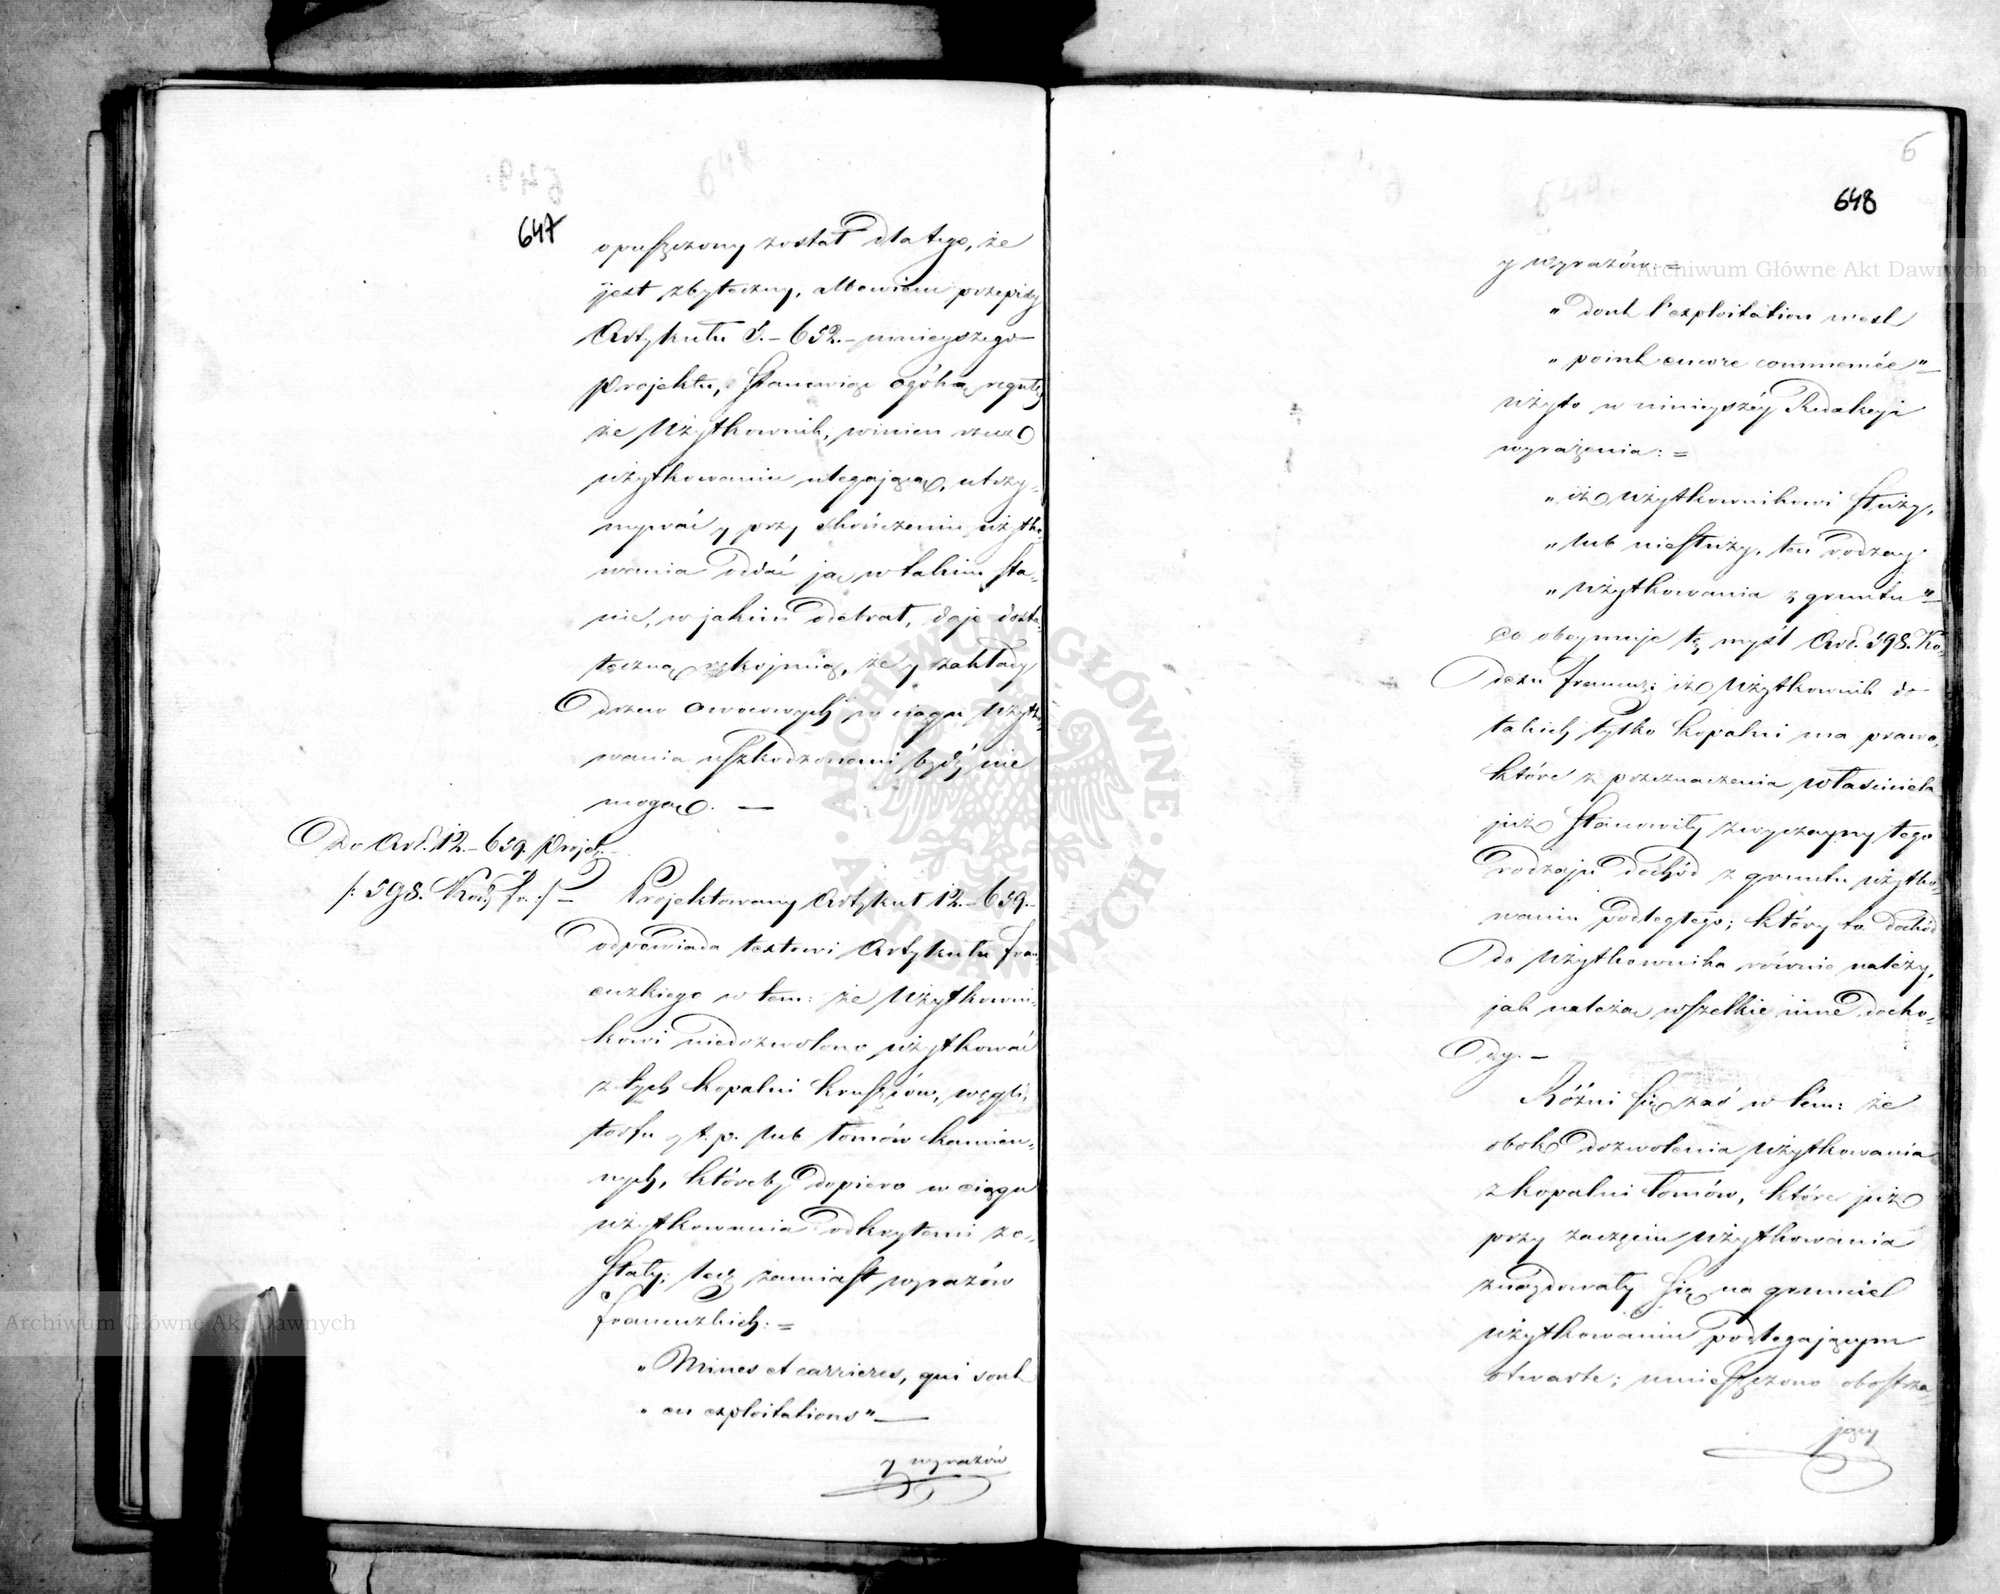 647
opuszczony został dla tego, że
jest zbyteczny, albowiem przepisy
Artykułu 5.-652.- ninieyszego
Projektu, stanowiąc ogólną regułę,
że Użytkownik, winien rzecz
użytkowaniu ulegającą, utrzy-
mywać y przy skończeniu użytko-
wania oddać ją w takim sta-
nie, w jakim odebrał, daje dosta-
teczną rękojmią, że y zakłady
drzew owocowych w ciągu użytko-
wania uszkodzonemi bydź nie
mogą. —
Do Art. 12.-659. Projek.
/: 598. Kod. fr. :/ — Projektowany Artykuł 12.-659.-
odpowiada textowi Artykułu fran-
cuzkiego w tem: że Użytkowni-
kowi niedozwolono użytkować
z tych kopalni kruszców, węgli,
torfu y t. p. lub łomów kamien-
nych, któreby dopiero w ciągu
użytkowania odkrytemi zo-
stały; lecz zamiast wyrazów
francuzkich: =
„Mines et carrieres, qui sont
„en exploitations" —
y wyrazów
6
648
y wyrazów: =
„dont l'exploitation n'est
„point encore commencée" —
użyto w ninieyszéy Redakcyi
wyrażenia: =
„iż użytkownikowi służy,
„lub niesłuży, ten rodzay
„użytkowania z gruntu" —
co obeymuje tę myśl Art. 598. Ko-
dexu francuz: iż Użytkownik do
takich tylko kopalni ma prawo,
które z przeznaczenia właściciela
już stanowiły zwyczayny tego
rodzaju dochód z gruntu użytko-
waniu podległego; który to dochód
do Użytkownika równie należy,
jak należą wszelkie inne docho-
dy. —
Różni się zaś w tém: że
obok dozwolenia użytkowania
z kopalni łomów, które już
przy zaczęciu użytkowania
znaydowały się na gruncie
użytkowaniu podlegającym
otwarte; umieszczono obostrza-
jącey
Archiwum Główne Akt Dawnych
Archiwum Główne Akt Dawnych
ARCHIWUM GŁÓWNE AKT DAWNYCH